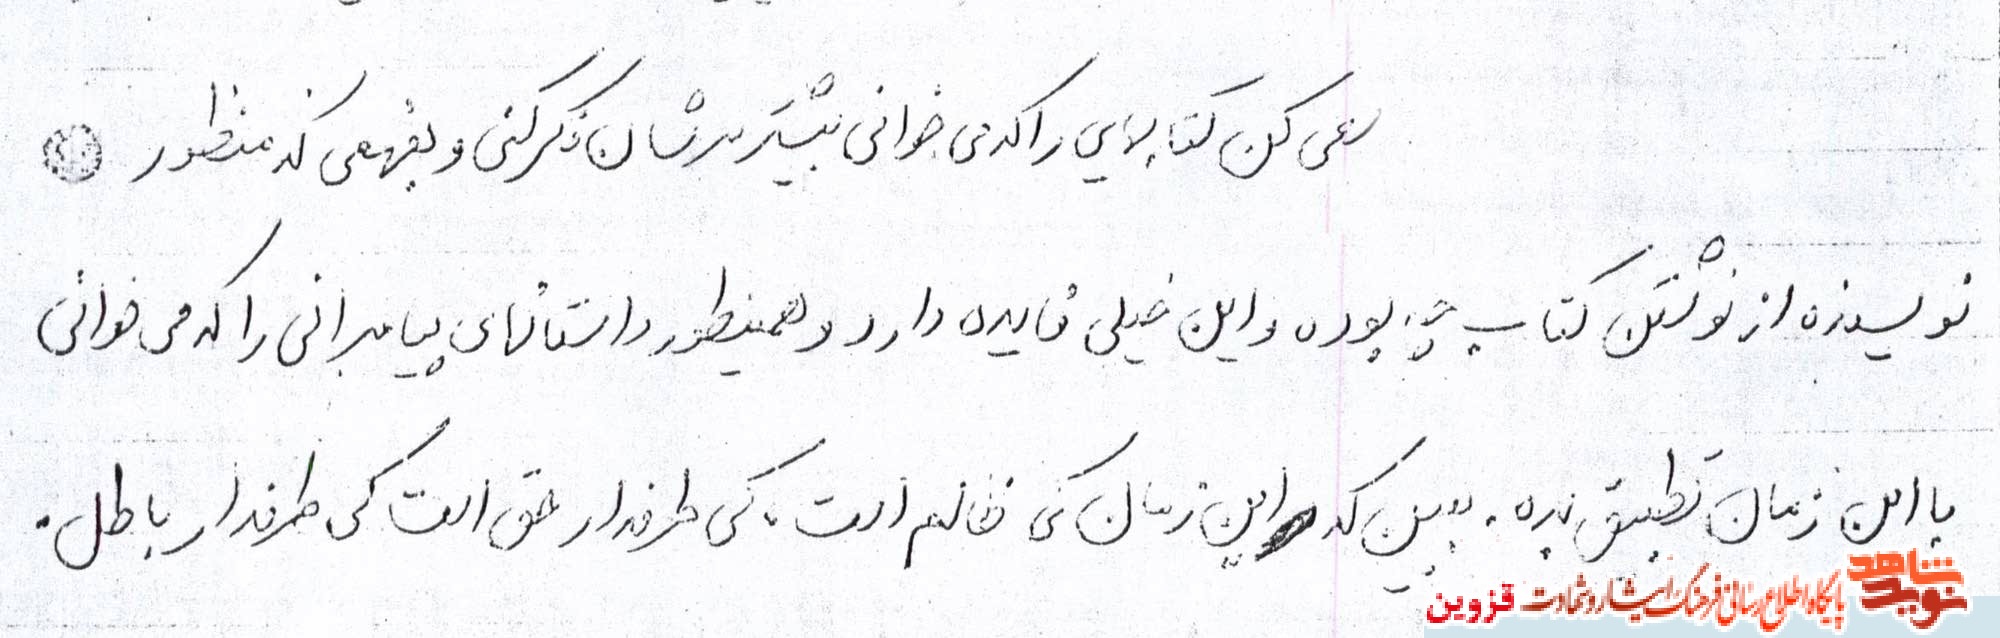 سعی کن کتابهایی را که می خوانی بیشتر سرشان فکر کنی و بفهمی که منظور
نویسنده از نوشتن کتاب چی بوده و این خیلی فایده دارد و همینطور داستانهای پیامبرانی را که می خوانی
با این زمان تطبیق بده. ببین که این زمان کی ظالم است، کی طرفدار حق است کی طرفدار باطل.
نوید شاهد
پایگاه اطلاع رسانی فرهنگ ایثار و شهادت قزوین